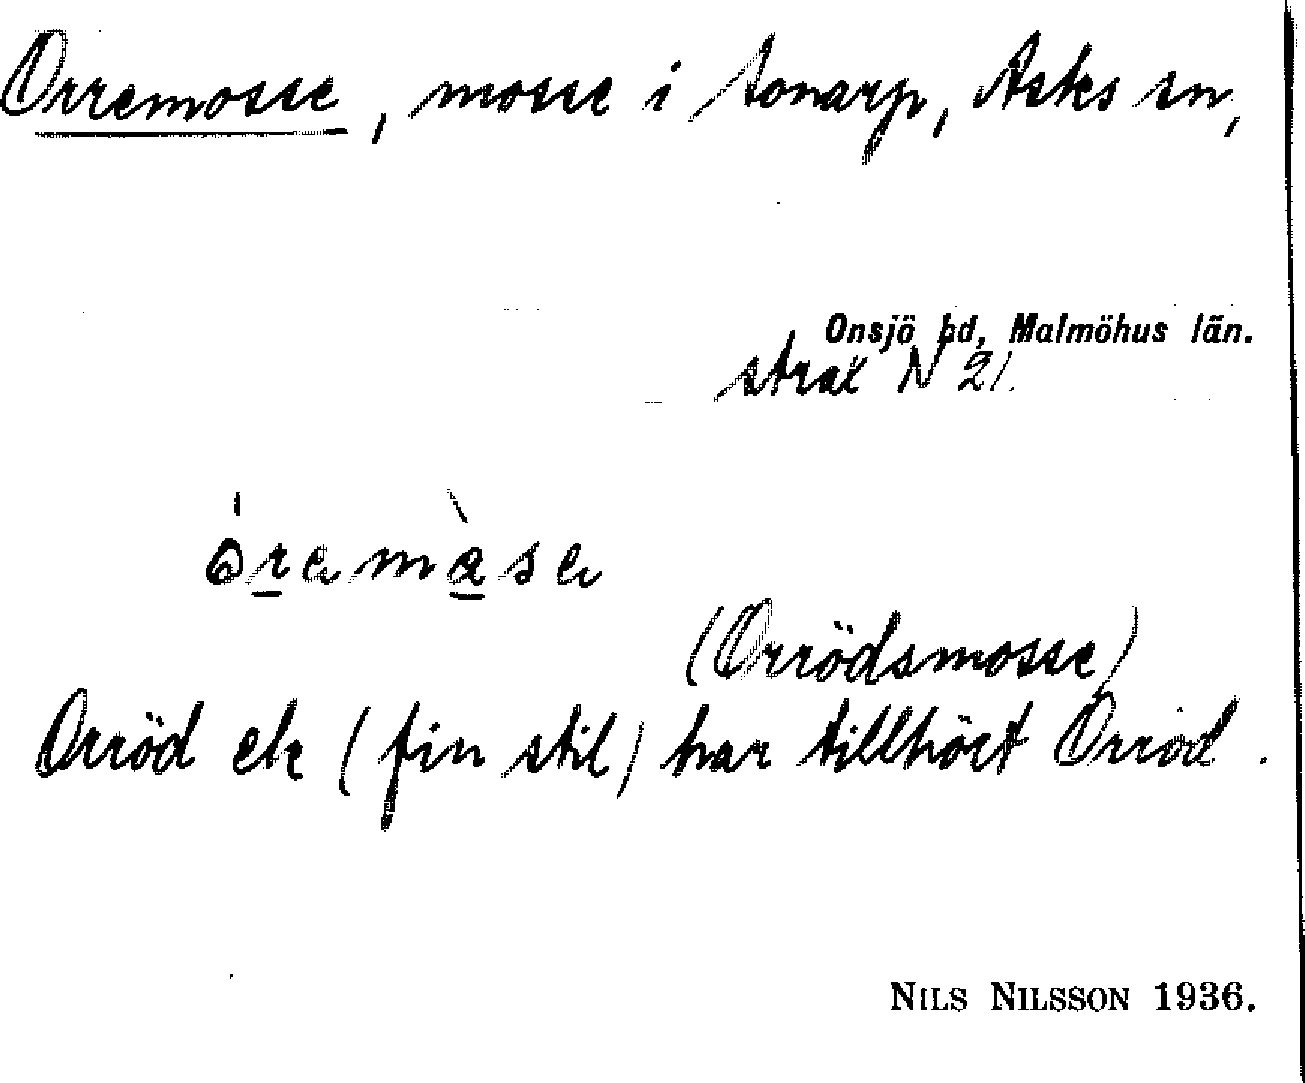 Orremosse, mosse i Konarp, Asks sn,
Onsjö hd, Malmöhus län.
strax N 21.
òremàse
(Orrödsmosse)
Orröd ek (fin stil) har tillhört Orröd.
NILS NILSSON 1936.